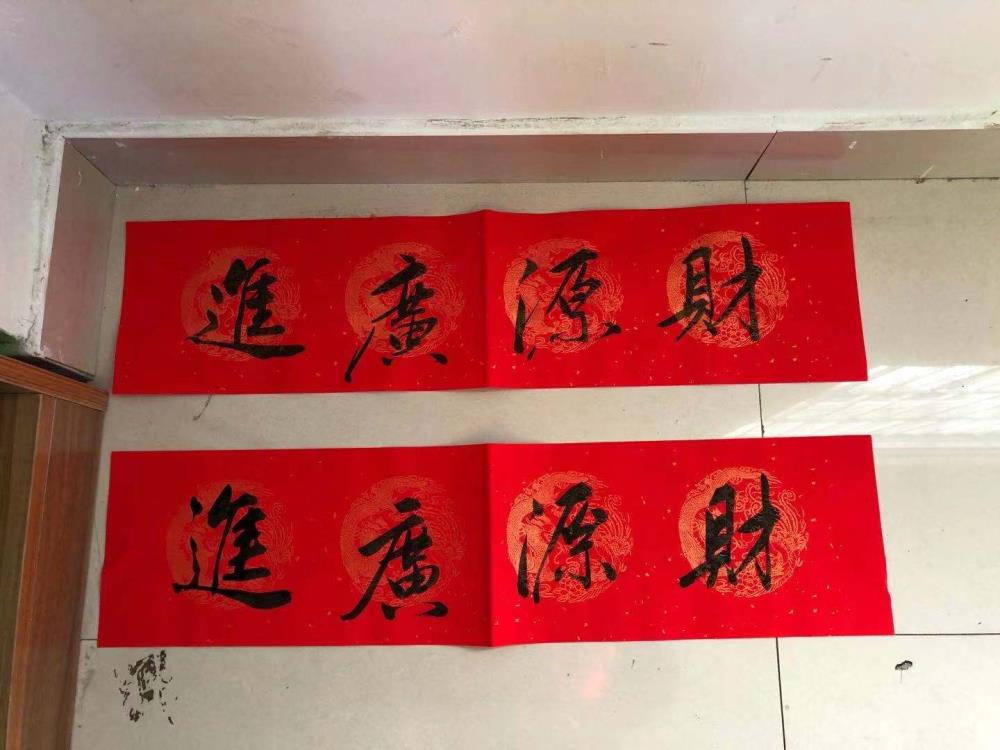 財源廣進
財源廣進